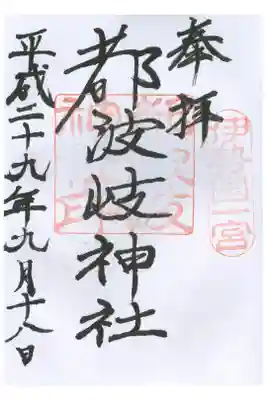 奉拝
伊勢國一宮
都波岐神社
平成二十九年九月十八日